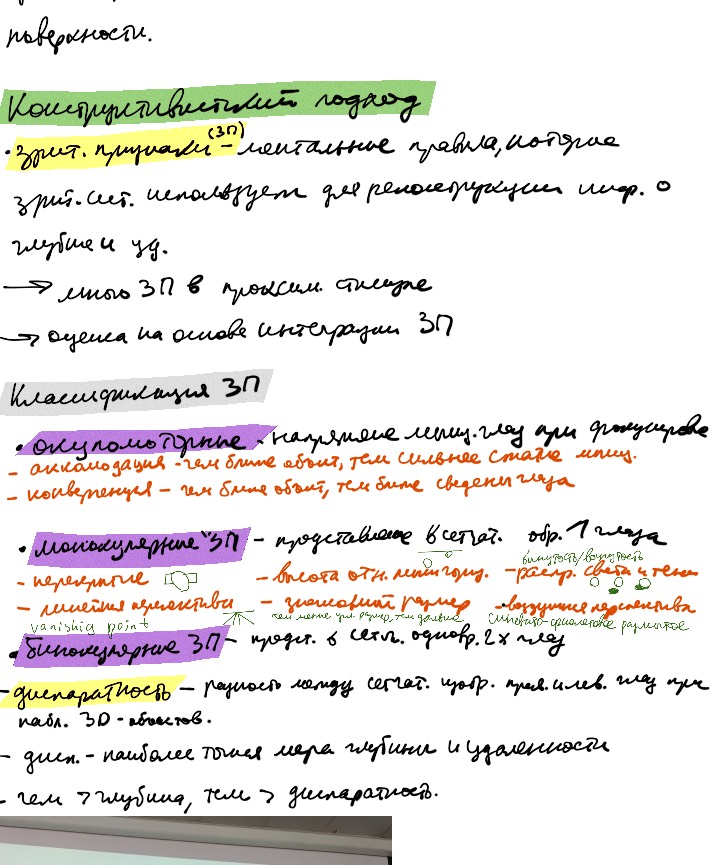 поверхности.
Конструктивистский подход
• зрит. признаки (ЗП) – ментальные правила, которые
зрит. сист. использует для реконструкции инф. о
глубине и уд.
→ много ЗП в проксим. стимуле
→ оценка на основе интеграции ЗП
Классификация ЗП
• окуломоторные - напряжение мышц. глаз при фокусировке
- аккомодация - чем ближе объект, тем сильнее сжатие мышц.
- конвергенция – чем ближе объект, тем ближе сведены глаза
• монокулярные ЗП – представление в сетчат. обр. 1 глаза
выпуклость/вогнутость
- перекрытие - высота отн. линии гориз. - распр. света и тени
- линейная перспектива - знакомый размер • воздушная перспектива
vanishig point чем меньше размер, тем дальше синевато-фиолетовое размытое
• бинокулярные ЗП – предст. в сетч. одновр. 2х глаз
- диспаратность – разность между сетчат. изобр. прав. и лев. глаз при
набл. 3D - объектов.
- дисп. – наиболее точная мера глубины и удаленности
- чем > глубина, тем > диспаратность.